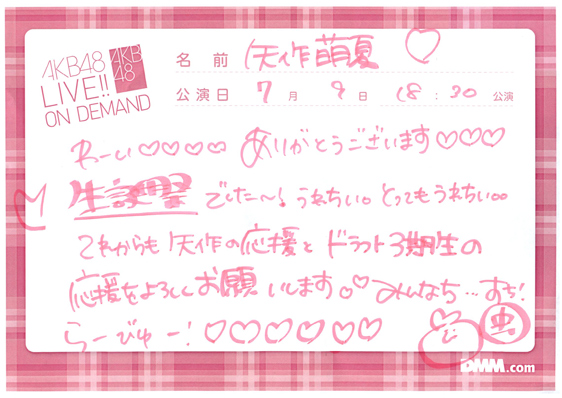 AKB48
LIVE!!
ON DEMAND
AKB
48
名前 矢作萌夏 ♡
公演日 7月 9日 18:30 公演
わーい♡♡♡♡ ありがとうございます♡♡♡
生誕祭 でした〜! うれちい。とってもうれちい。。
これからも 矢作の応援と ドラフト3期生の
応援をよろしくお願いします。♡ みんなち…すち!
らーびゅー! ♡♡♡♡♡♡
虫
DMM.com